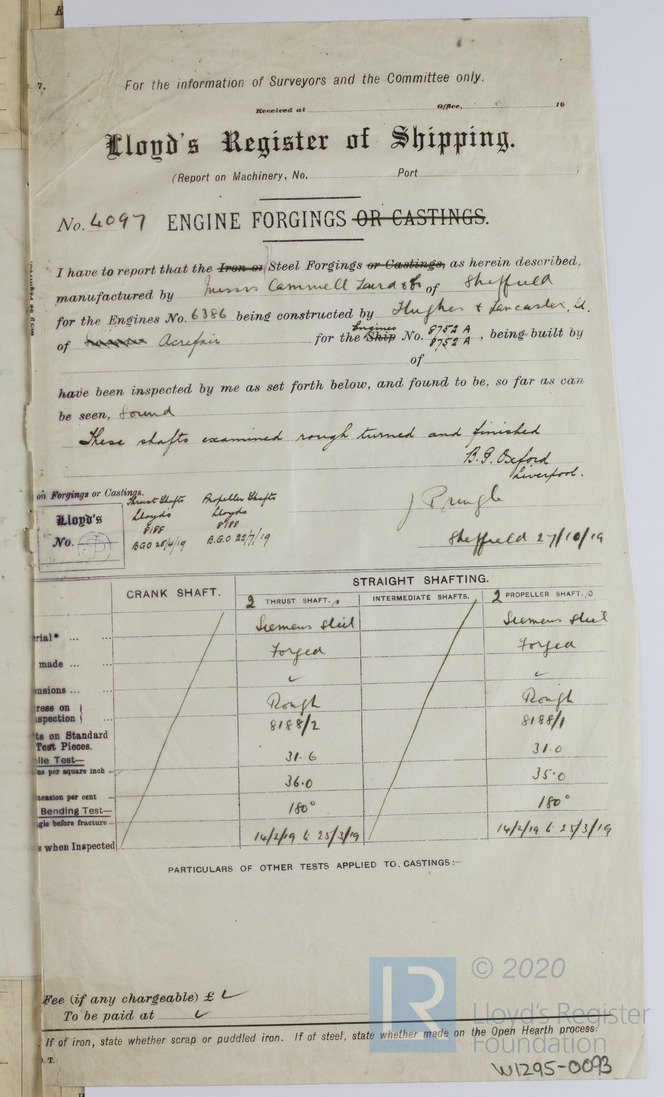 For the information of Surveyors and the Committee only.
Received at Office, 19
Lloyd's Register of Shipping.
(Report on Machinery, No. Port )
No. 4097 ENGINE FORGINGS OR CASTINGS.
I have to report that the Iron or Steel Forgings or Castings, as herein described,
manufactured by Messrs Cammell Laird & Co of Sheffield
for the Engines No. 6386 being constructed by Hughes & Lancaster, Ld.
of Acrefair for the Ship Engines No. 8752 A 8752 A, being built by
of
have been inspected by me as set forth below, and found to be, so far as can
be seen, sound
These shafts examined rough turned and finished
B. G. Oxford
Liverpool.
on Forgings or Castings.
Thrust Shafts Propeller Shafts
Lloyd's Lloyds Lloyds
No. 8188 8188
BGO 28/4/19 B.G.O 22/7/19
J Pringle
Sheffield 27/10/19
STRAIGHT SHAFTING.
CRANK SHAFT. 2 THRUST SHAFT.s INTERMEDIATE SHAFTS. 2 PROPELLER SHAFT.s
erial* ... ... Siemens Steel Siemens Steel
made ... ... Forged Forged
ensions ... ...
ress on Rough Rough
spection ...
ts on Standard 8188/2 8188/1
Test Pieces.
ile Test—
ns per square inch 31.6 31.0
tension per cent 36.0 35.0
Bending Test—
gle before fracture 180° 180°
s when Inspected 14/2/19 to 25/3/19 14/2/19 to 25/3/19
PARTICULARS OF OTHER TESTS APPLIED TO CASTINGS:—
Fee (if any chargeable) £
To be paid at
If of iron, state whether scrap or puddled iron. If of steel, state whether made on the Open Hearth process.
T.
© 2020
LR
Lloyd's Register
Foundation
W1295-0093